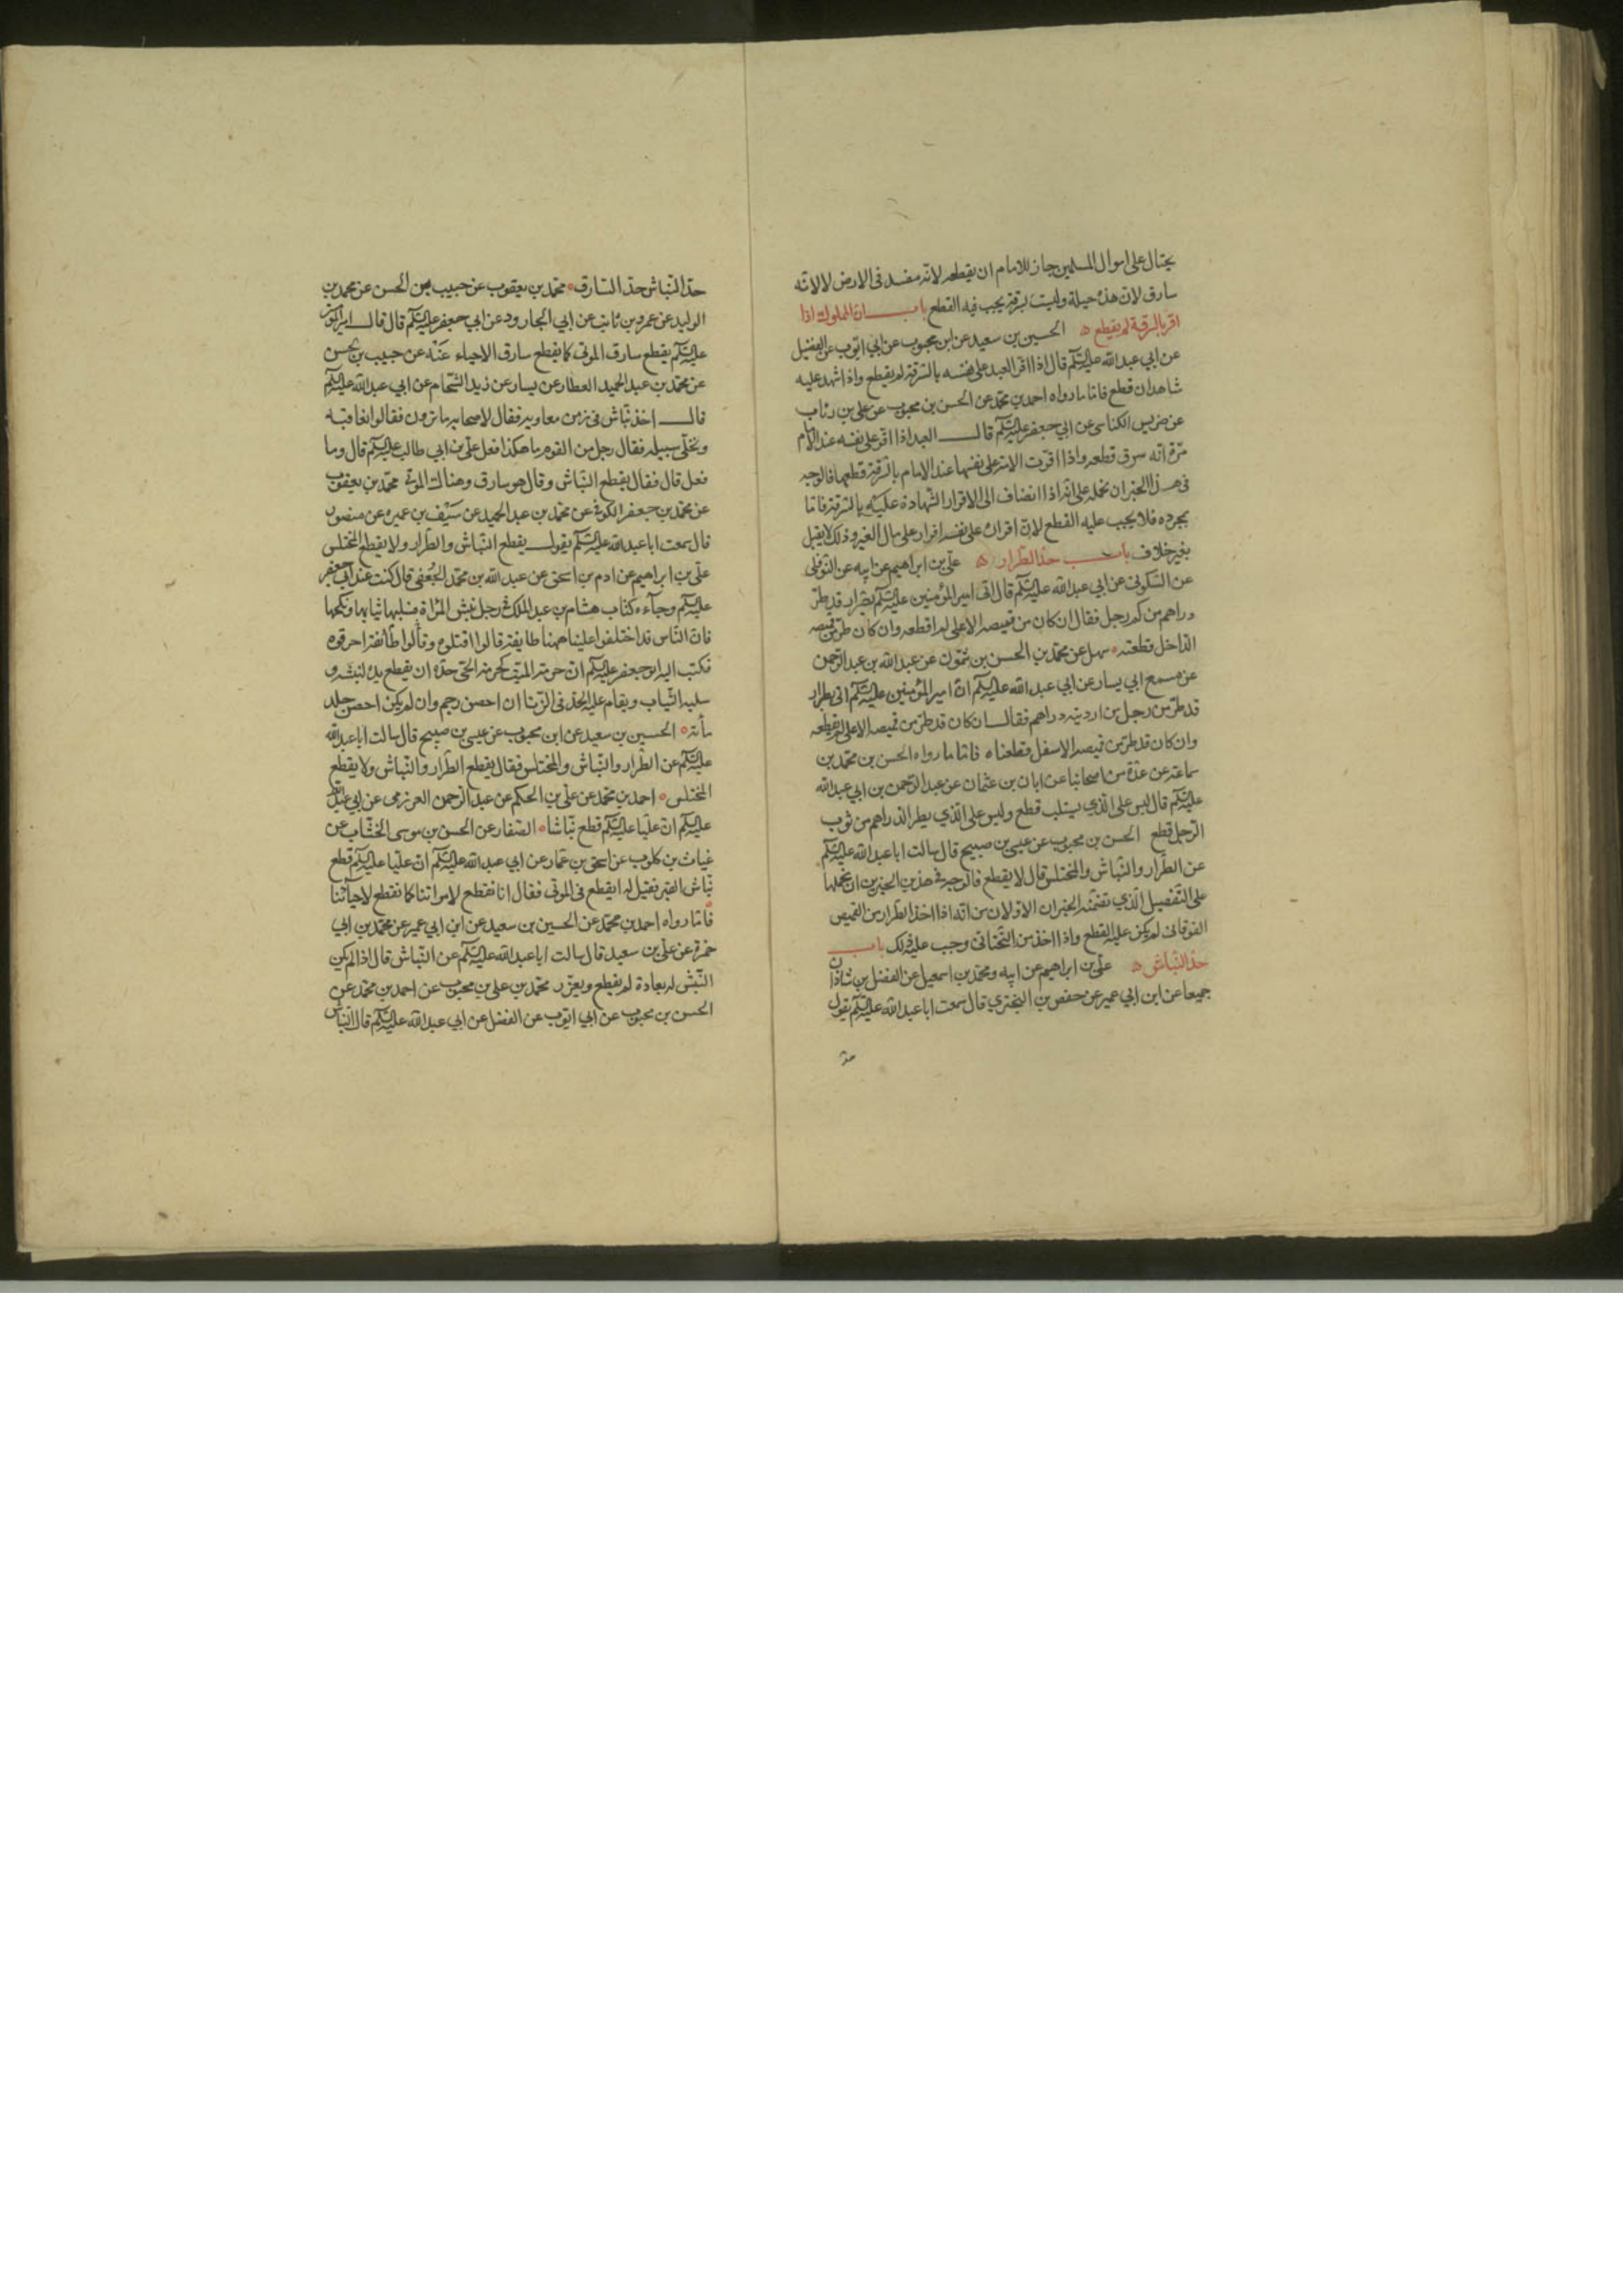 يحتال على اموال المسلمين جاز للامام ان يقطعه لانه مفسد فى الارض لا لانه
سارق لان هذه حيلة وليست بسرقة يجب فيه القطع باب ان المملوك اذا
اقر بالسرقة لم يقطع الحسين بن سعيد عن ابن محبوب عن ابى ايوب عن الفضيل
عن ابي عبد الله عليه السلم قال اذا اقر العبد على نفسه بالسرقة لم يقطع واذا شهد عليه
شاهدان قطع فاما ما رواه احمد بن محمد عن الحسن بن محبوب عن على بن رئاب
عن ضريس الكناسى عن ابي جعفر عليه السلم قال العبد اذا اقر على نفسه عند الامام
مرة انه سرق قطعه واذا اقرت الامة على نفسها عند الامام بالسرقة قطعها فالوجه
فى هذا الخبر ان نحمله على انه اذا انضاف الى الاقرار الشهادة عليه بالسرقة فاما
بمجرده فلا يجب عليه القطع لان اقراره على نفسه اقرار على مال الغير وذلك لا يقبل
بغير خلاف باب حد الطرار على بن ابراهيم عن ابيه عن النوفلى
عن السكونى عن ابي عبد الله عليه السلم قال اتى امير المؤمنين عليه السلم بطرار قد طر
دراهم من كم رجل فقال ان كان من قميصه الاعلى لم اقطعه وان كان طر من قميصه
الداخل قطعته سهل عن محمد بن الحسن بن شمون عن عبد الله بن عبد الرحمن
عن مسمع ابي يسار عن ابي عبد الله عليه السلم ان امير المؤمنين عليه السلم اتى بطرار
قد طر من رجل من اردنه دراهم فقال ان كان قد طر من قميصه الاعلى لم نقطعه
وان كان قد طر من قميصه الاسفل قطعناه فاما ما رواه الحسن بن محمد بن
سماعة عن عدة من اصحابنا عن ابان بن عثمان عن عبد الرحمن بن ابي عبد الله
عليه السلم قال ليس على الذي يستلب قطع وليس على الذي يطر الدراهم من ثوب
الرجل قطع الحسن بن محبوب عن عيسى بن صبيح قال سالت ابا عبد الله عليه السلم
عن الطرار والنباش والمختلس قال لا يقطع فالوجه فى هذين الخبرين ان نحملها
على التفصيل الذي تضمنه الخبران الاولان من انه اذا اخذ الطرار من القميص
الفوقانى لم يكن عليه القطع واذا اخذ من التحتانى وجب عليه ذلك باب
حد النباش على بن ابراهيم عن ابيه ومحمد بن اسمعيل عن الفضل بن شاذان
جميعا عن ابن ابي عمير عن حفص بن البخترى قال سمعت ابا عبد الله عليه السلم يقول
حد
حد النباش حد السارق محمد بن يعقوب عن حبيب بن الحسن عن محمد بن
الوليد عن عمرو بن ثابت عن ابي الجارود عن ابي جعفر عليه السلم قال قال امير المؤمنين
عليه السلم يقطع سارق الموتى كما يقطع سارق الاحياء عنه عن حبيب بن الحسن
عن محمد بن عبد الحميد العطار عن يسار عن زيد الشحام عن ابي عبد الله عليه السلم
قال اخذ نباش فى زمن معاوية فقال لاصحابه ما ترون فقالوا نعاقبه
ونخلى سبيله فقال رجل من القوم ما هكذا فعل على بن ابي طالب عليه السلم قال وما
فعل قال فقال يقطع النباش وقال هو سارق وهتاك الموتى محمد بن يعقوب
عن محمد بن جعفر الكوفى عن محمد بن عبد الحميد عن سيف بن عميرة عن منصور
قال سمعت ابا عبد الله عليه السلم يقول يقطع النباش والطرار ولا يقطع المختلس
على بن ابراهيم عن ادم بن اسحق عن عبد الله بن محمد الجعفى قال كنت عند ابي جعفر
عليه السلم وجآءه كتاب هشام بن عبد الملك فى رجل نبش امراة فسلبها ثيابها ونكحها
فان الناس قد اختلفوا علينا ههنا طايفة قالوا اقتلوه وقالوا طائفة احرقوه
فكتب اليه ابو جعفر عليه السلم ان حرمة الميت كحرمة الحى حده ان يقطع يده لنبشه و
سلبه الثياب ويقام عليه الحد فى الزنا ان احصن رجم وان لم يكن احصن جلد
مأئة الحسين بن سعيد عن ابن محبوب عن عيسى بن صبيح قال سالت ابا عبد الله
عليه السلم عن الطرار والنباش والمختلس فقال يقطع الطرار والنباش ولا يقطع
المختلس احمد بن محمد عن على بن الحكم عن عبد الرحمن العرزمى عن ابي عبد الله
عليه السلم ان عليا عليه السلم قطع نباشا الصفار عن الحسن بن موسى الخشاب عن
غياث بن كلوب عن اسحق بن عمار عن ابي عبد الله عليه السلم ان عليا عليه السلم قطع
نباش القبر فقيل له ايقطع فى الموتى فقال انا نقطع لامواتنا كما نقطع لاحيائنا
فاما رواه احمد بن محمد عن الحسين بن سعيد عن ابن ابي عمير عن محمد بن ابي
حمزة عن على بن سعيد قال سالت ابا عبد الله عليه السلم عن النباش قال اذا لم يكن
النبش له بعادة لم يقطع ويعزر محمد بن على بن محبوب عن احمد بن محمد عن
الحسن بن محبوب عن ابي ايوب عن الفضل عن ابي عبد الله عليه السلم قال النباش